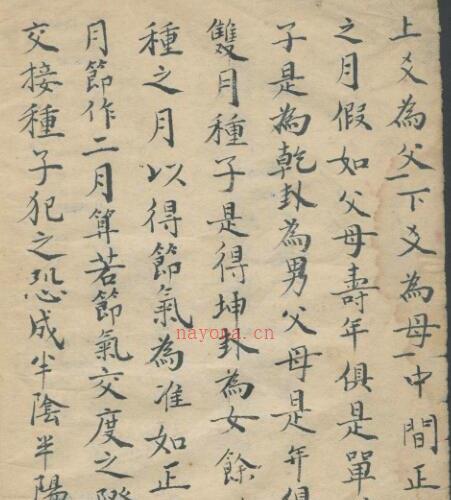 上爻為父下爻為母中間正
之月假如父母壽年俱是單
子是為乾卦為男父母是年俱
雙月種子是得坤卦為女餘
種之月以得節氣為准如正
月節作二月算若節氣交度之際
交接種子犯之恐成半陰半陽
nayona.cn